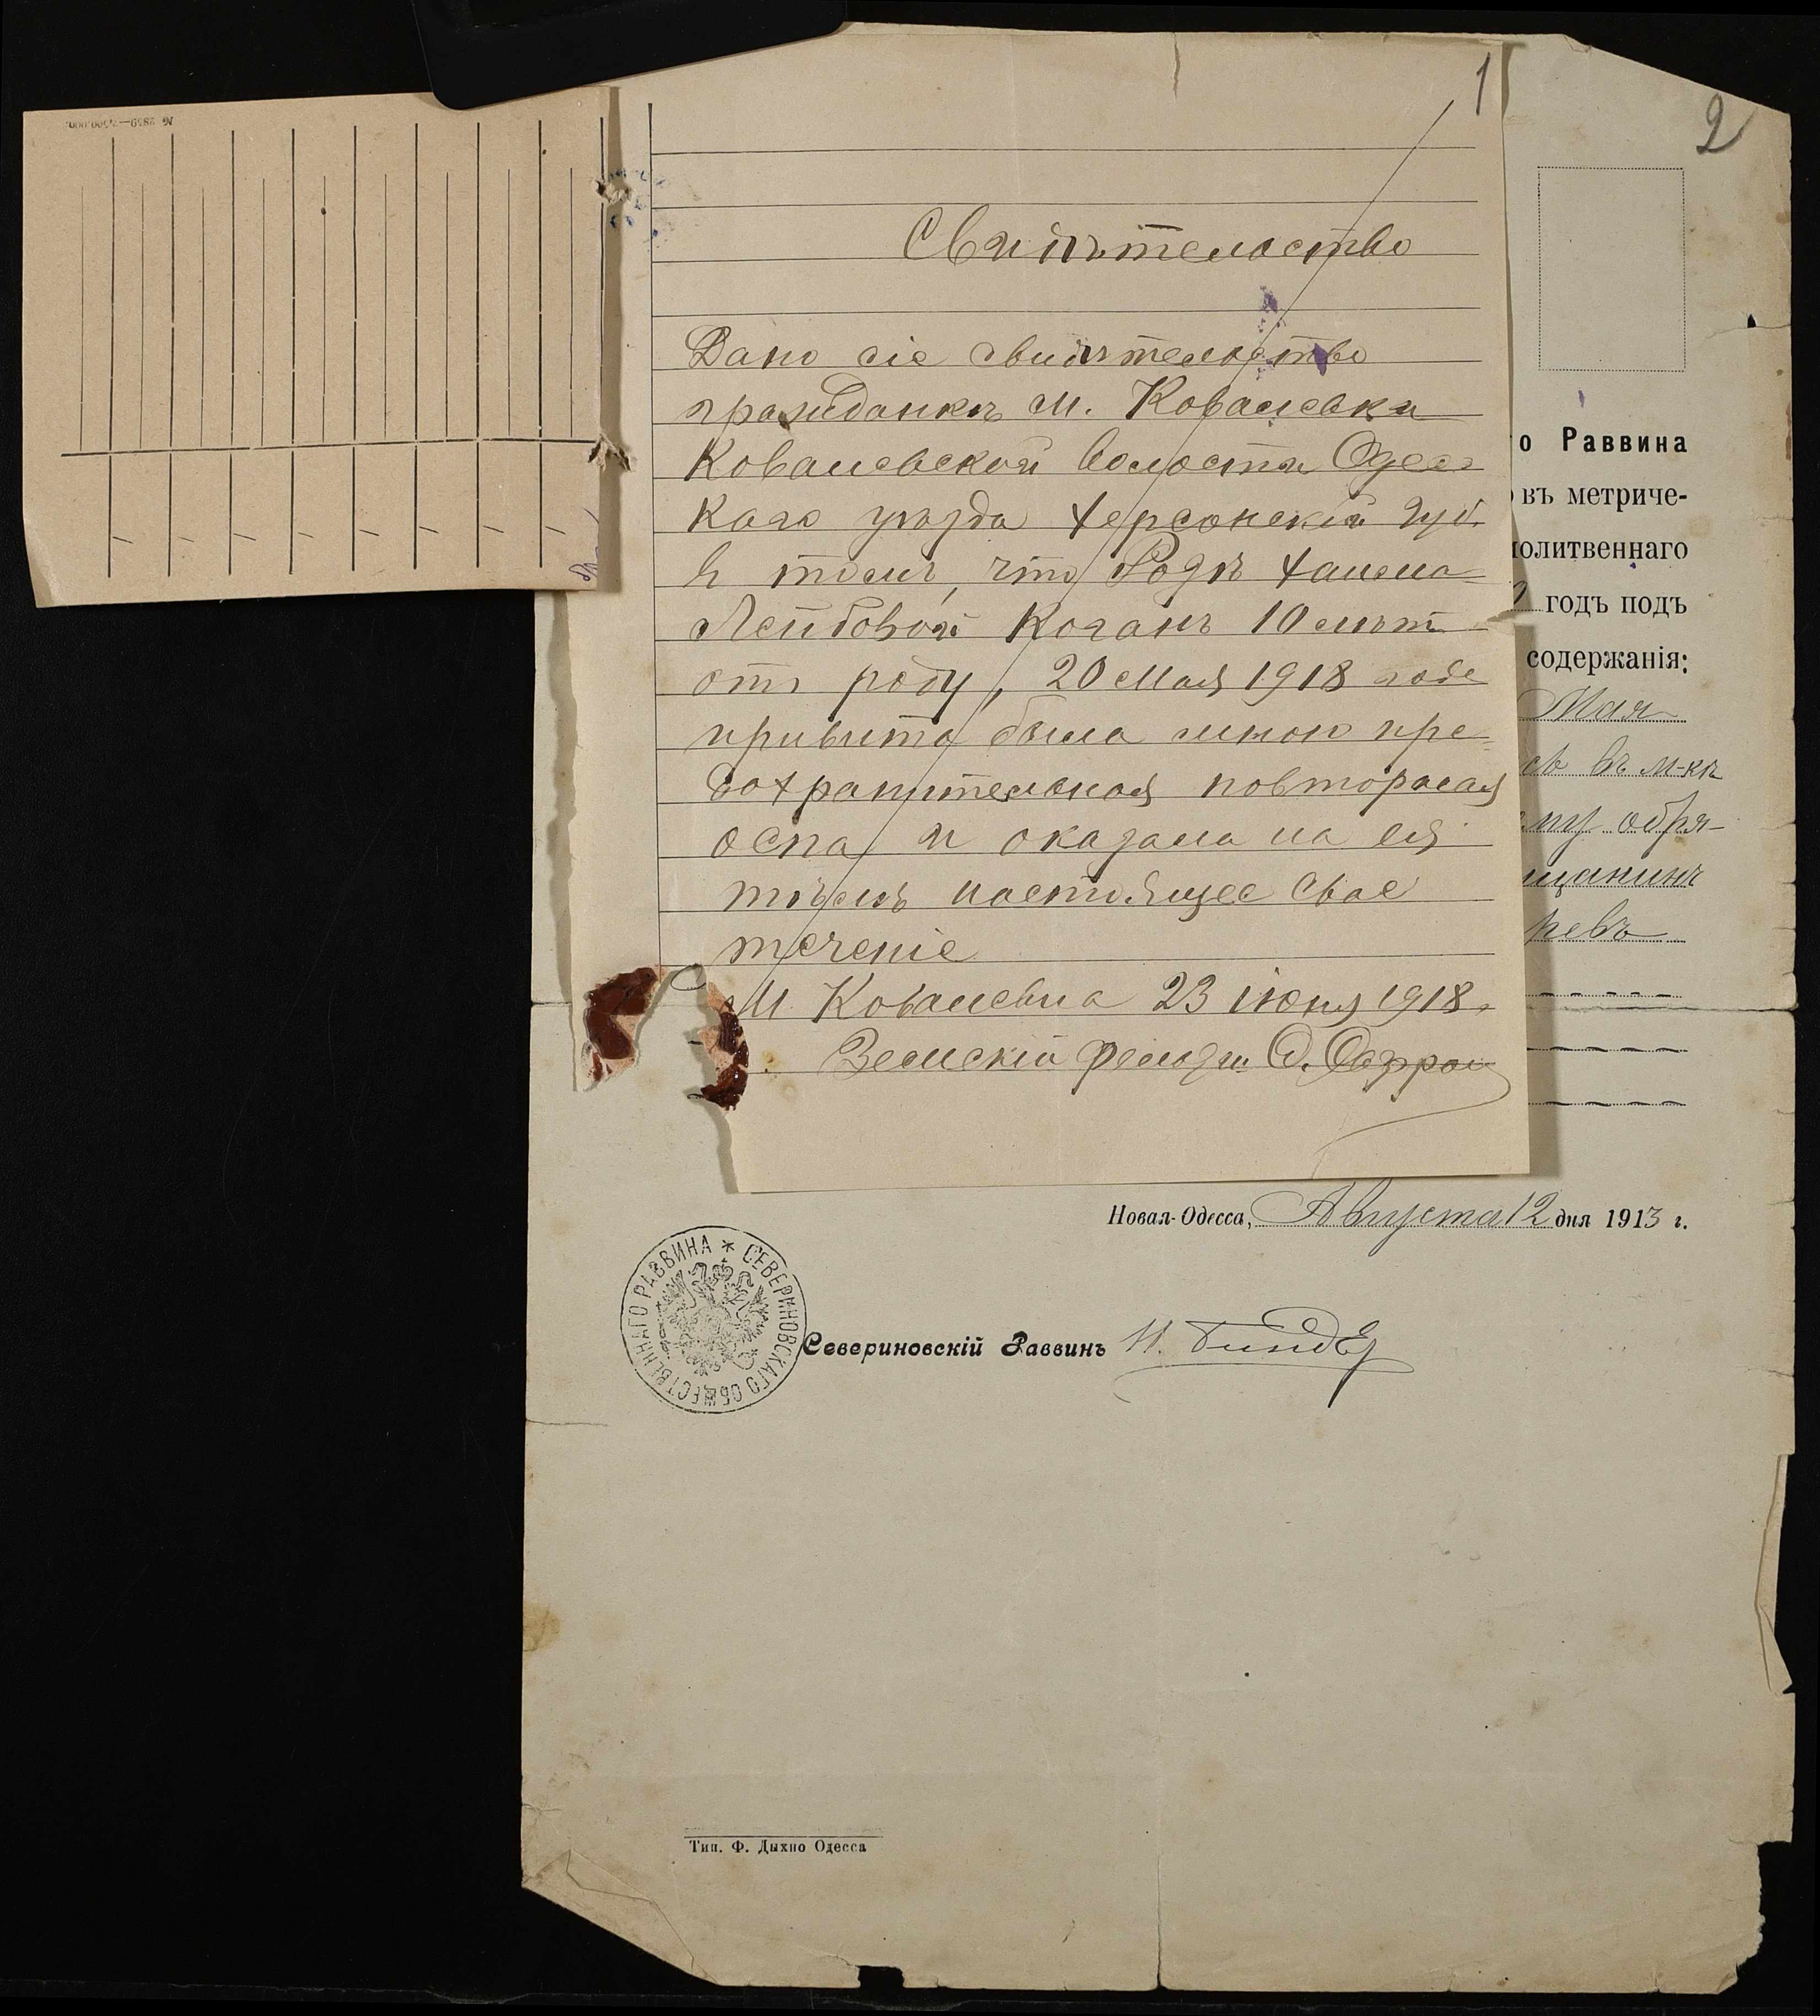 № 2859—2.500.000.
1
2
Свидѣтельство
Дано сіе свидѣтельство
гражданкѣ м. Ковалевки
Ковалевской волости Одес-
каго уѣзда Херсонскій губ.
в томъ, что
Лейбовой Коганъ 10 лѣт
отъ роду, 20 Мая 1918 года
привита была мною пре-
дохранительная повторная
оспа и оказала на ея
тѣлѣ настоящее свое
теченіе
М. Ковалевка 23 іюня 1918 г.
Земскій фельдш.
о Раввина
въ метриче-
молитвеннаго
годъ подъ
содержанія:
Мая
въ м-кѣ
обря-
щанинъ
Новая-Одесса, Августа 12 дня 1913 г.
СЕВЕРИНОВСКАГО ОБЩЕСТВЕННАГО РАВВИНА *
Севериновскій Раввинъ
Тип. Ф. Дыхно Одесса